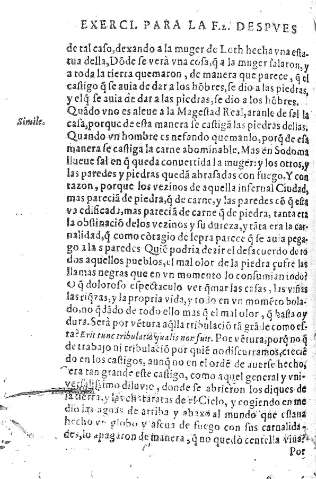 EXERCI. PARA LA F.2. DESPVES
de tal caso, dexando a la muger de Loth hecha vna esta-
tua della, Dōde se verà vna cosa, q̄ a la muger salaron, y
a toda la tierra quemaron, de manera que parece, q̄ el
castigo q̄ se auia de dar a los hōbres, se dio a las piedras,
y el q̄ se auia de dar a las piedras, se dio a los hōbres.
Simile.
Quādo vno es aleue a la Magestad Real, aranle de sal la
casa, porque de esta manera se castigā las piedras dellas.
Quando vn hombre es nefando quemanlo, porq̄ de esa
manera se castiga la carne abominable. Mas en Sodoma
llueue sal en q̄ queda conuertida la muger: y los otros, y
las paredes y piedras quedā abrasadas con fuego. Y con
razon, porque los vezinos de aquella infernal Ciudad,
mas pareciā de piedra, q̄ de carne, y las paredes cō q̄ esta
va edificada, mas pareciā de carne q̄ de piedra, tanta era
la obstinaciō de los vezinos y su dureza, y tāta era la car-
nalidad, q̄ como cōtagio de lepra parece q̄ se auia pega-
go a las paredes Quiē podria dezir el desacuerdo de to
das aquellos pueblos, el mal olor de la piedra çufre las
llamas negras que en vn momento lo consumian todo?
O q̄ doloroso espectaculo ver q̄mar las casas, las viñas
las riq̄zas, y la propria vida, y todo en vn momēto bola-
do, no q̄dādo de todo ello mas q̄ el mal olor, q̄ hasta oy
dura. Serà por vētura aq̄lla tribulaciō tā grāde como es-
ta? Erit tunc tribulatio qualis non fuit. Por vētura, porq̄ no q̄
de trabajo ni tribulacion por quiē no discurramos, crecié
do en los castigos, aunq̄ no en el ordē de auerse hecho,
sera tan grande este castigo, como aquel general y vni-
versalissimo diluvio, donde se abrieron los diques de
la tierra, y las cataratas de el Cielo, y cogiendo en me
dio las aguas de arriba y abaxo al mundo que estaua
hecho vn globo y ascua de fuego con sus carnalida-
des, lo apagaron de manera, q̄ no quedò centella viua?
Por